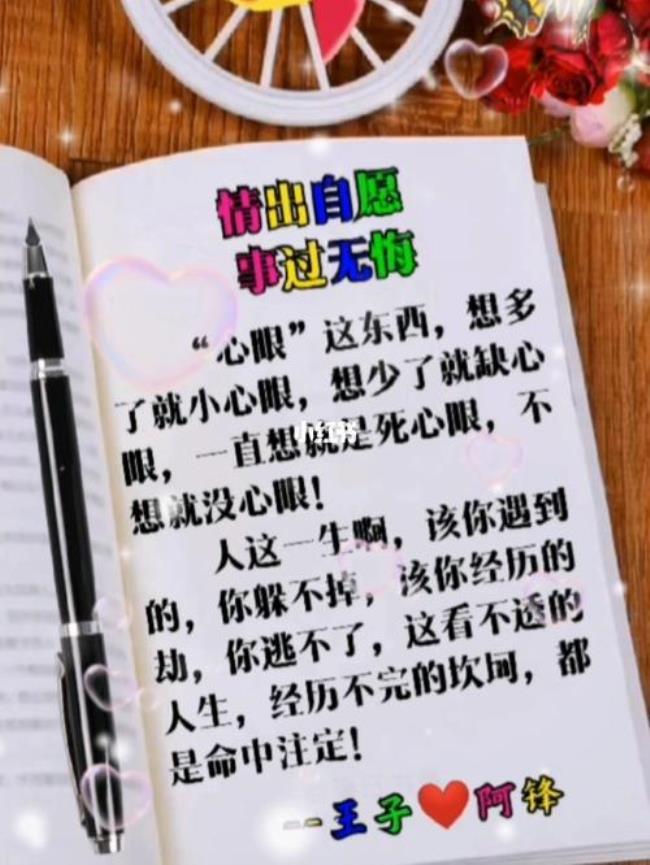 情出自愿
事过无悔
“心眼”这东西，想多
了就小心眼，想少了就缺心
眼，一直想就是死心眼，不
想就没心眼！
小红书
人这一生啊，该你遇到
的，你躲不掉，该你经历的
劫，你逃不了，这看不透的
人生，经历不完的坎坷，都
是命中注定！
--王子❤阿锋